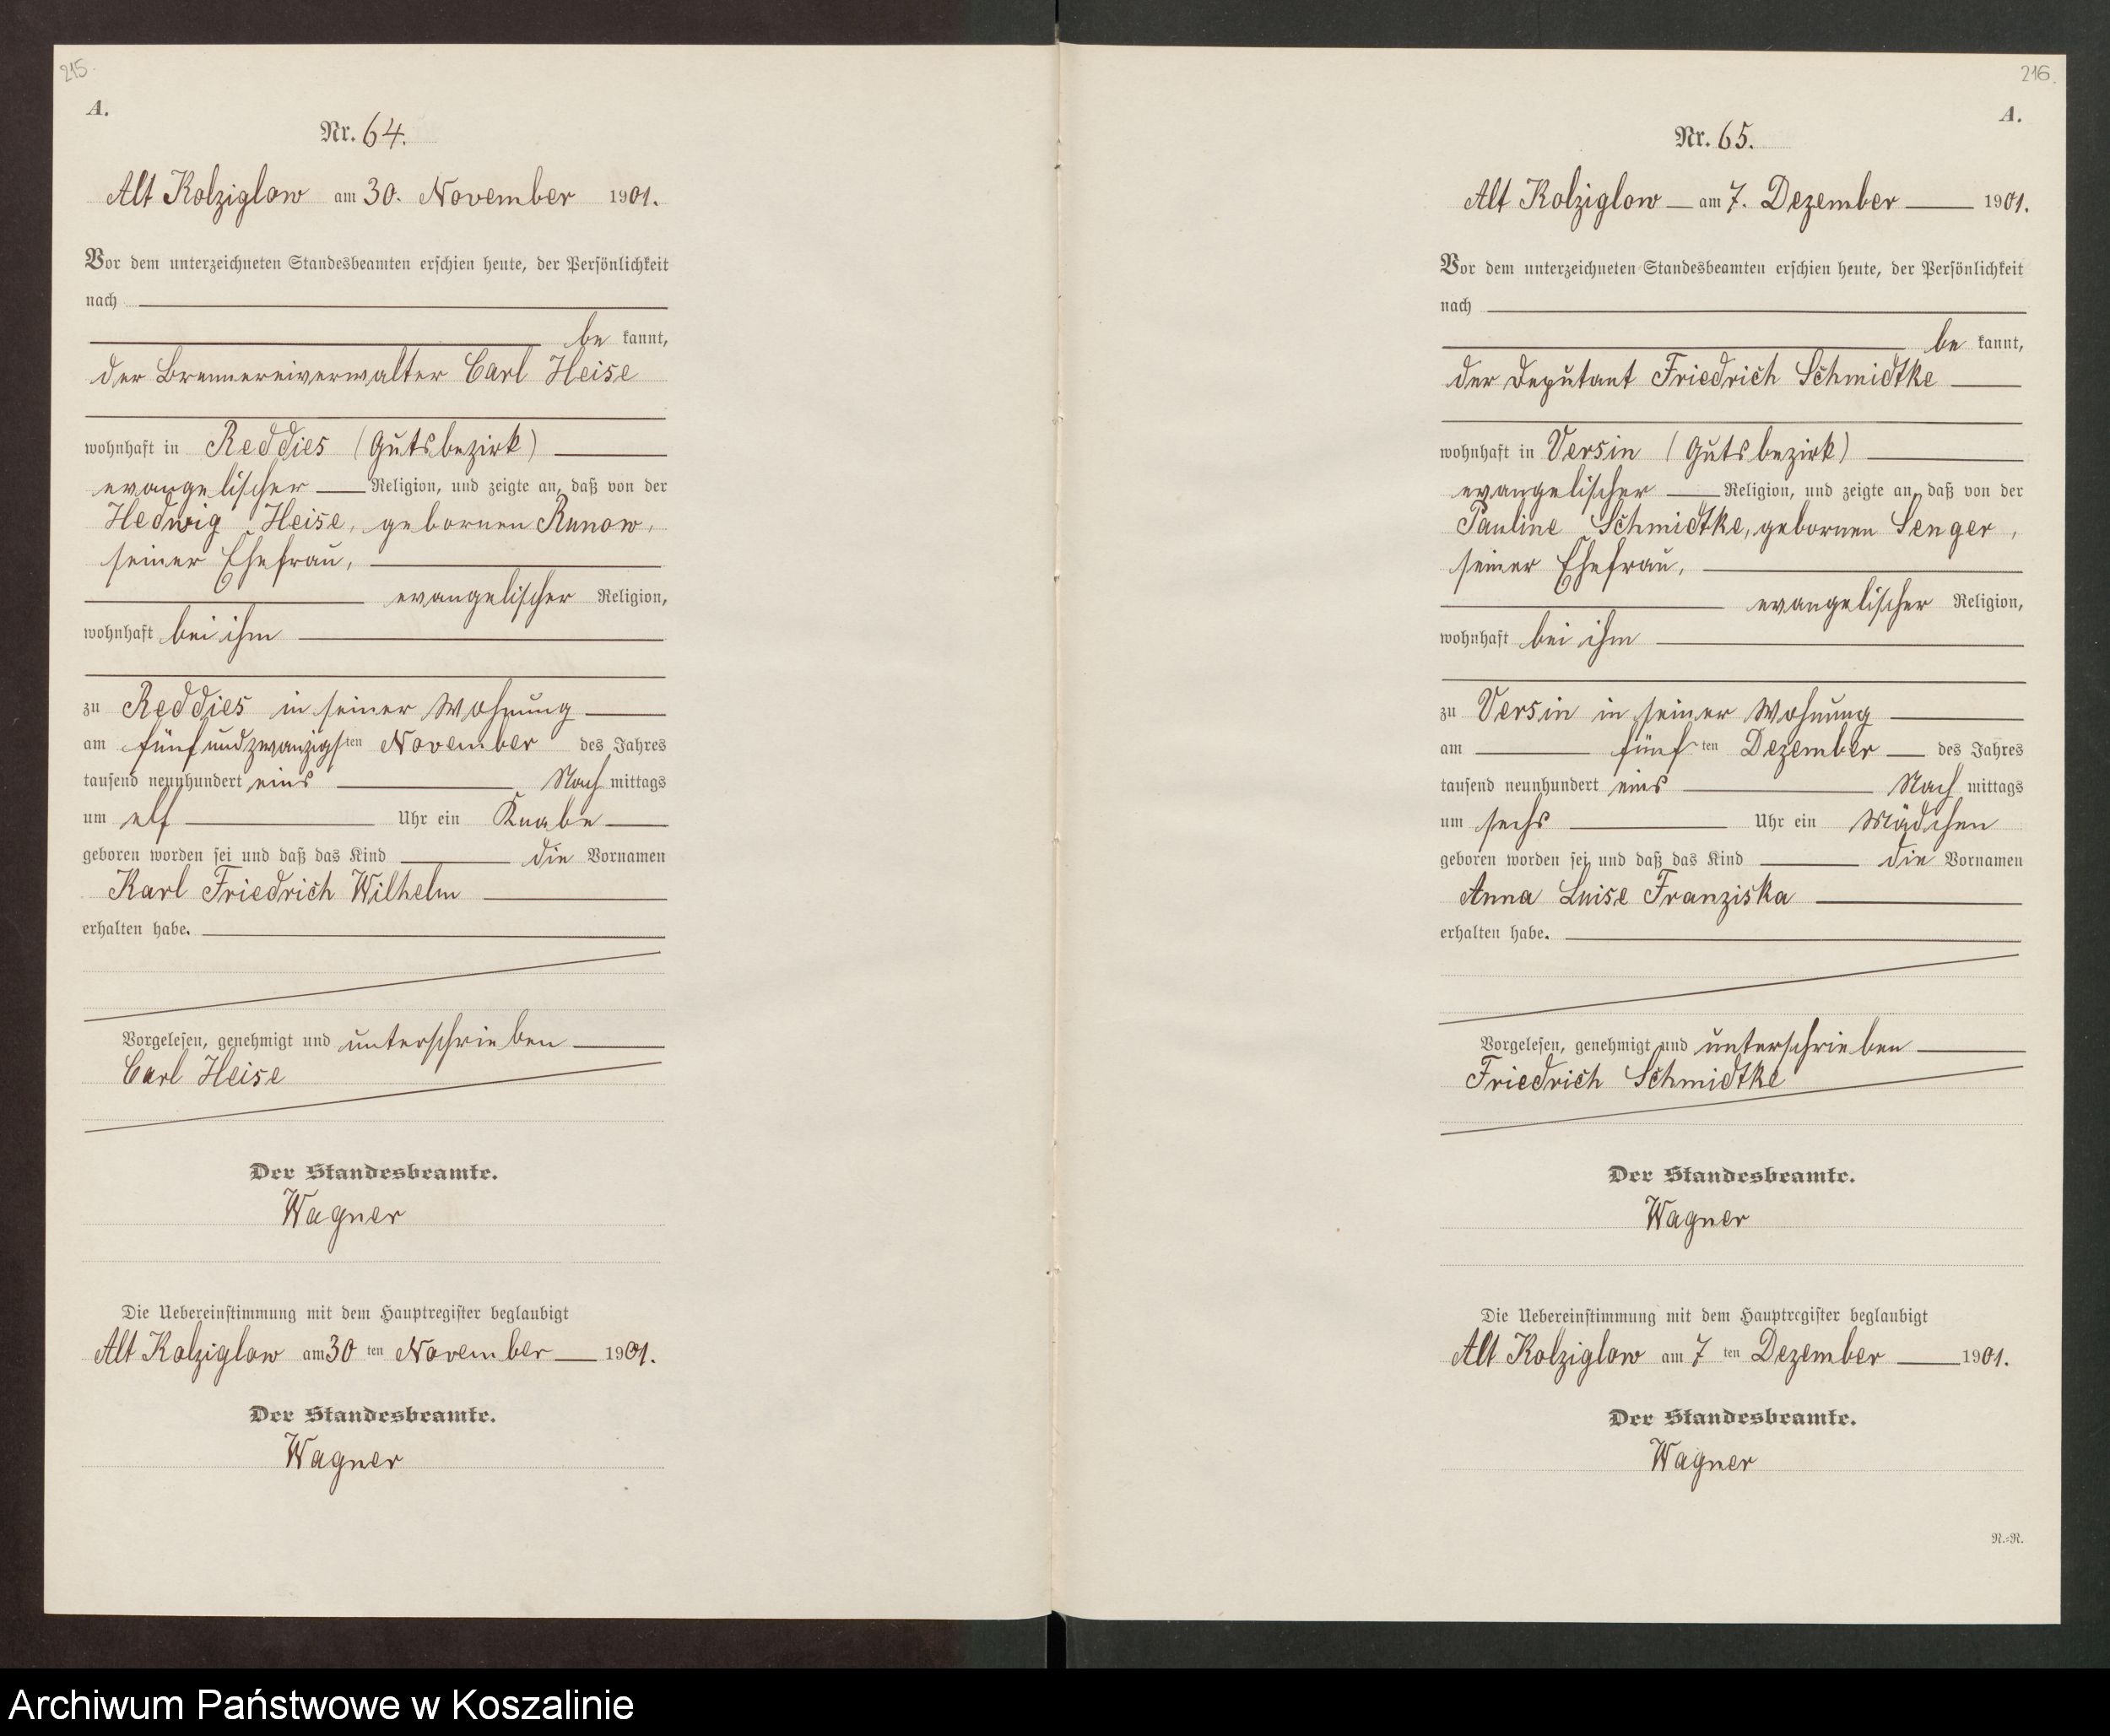 215.
A.
Nr. 64.
Alt Kolziglow am 30. November 1901.
Vor dem unterzeichneten Standesbeamten erschien heute, der Persönlichkeit
nach
be kannt,
der Brennereiverwalter Carl Heise
wohnhaft in Reddies (Gutsbezirk)
evangelischer Religion, und zeigte an, daß von der
Hedwig Heise, gebornen Runow,
seiner Ehefrau,
evangelischer Religion,
wohnhaft bei ihm
zu Reddies in seiner Wohnung
am fünfundzwanzigsten November des Jahres
tausend neunhundert eins Nach mittags
um elf Uhr ein Knabe
geboren worden sei und daß das Kind die Vornamen
Karl Friedrich Wilhelm
erhalten habe.
Vorgelesen, genehmigt und unterschrieben
Carl Heise
Der Standesbeamte.
Wagner
Die Uebereinstimmung mit dem Hauptregister beglaubigt
Alt Kolziglow am 30 ten November 1901.
Der Standesbeamte.
Wagner
216.
A.
Nr. 65.
Alt Kolziglow am 7. Dezember 1901.
Vor dem unterzeichneten Standesbeamten erschien heute, der Persönlichkeit
nach
be kannt,
der Deputant Friedrich Schmidtke
wohnhaft in Versin (Gutsbezirk)
evangelischer Religion, und zeigte an, daß von der
Pauline Schmidtke, gebornen Senger,
seiner Ehefrau,
evangelischer Religion,
wohnhaft bei ihm
zu Versin in seiner Wohnung
am fünf ten Dezember des Jahres
tausend neunhundert eins Nach mittags
um sechs Uhr ein Mädchen
geboren worden sei und daß das Kind die Vornamen
Anna Luise Franziska
erhalten habe.
Vorgelesen, genehmigt und unterschrieben
Friedrich Schmidtke
Der Standesbeamte.
Wagner
Die Uebereinstimmung mit dem Hauptregister beglaubigt
Alt Kolziglow am 7 ten Dezember 1901.
Der Standesbeamte.
Wagner
R.=R.
Archiwum Państwowe w Koszalinie